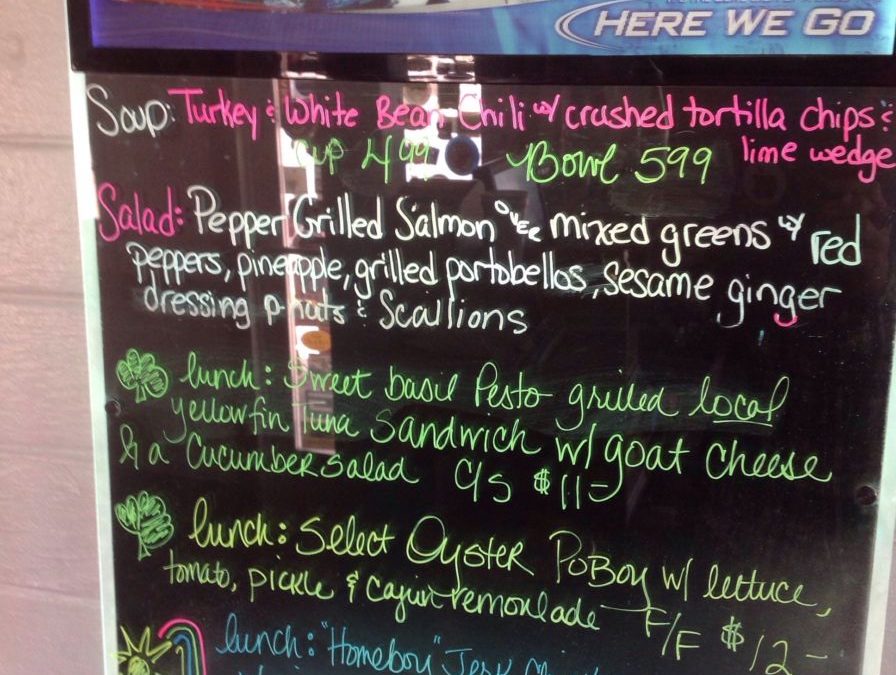 HERE WE GO
Soup: Turkey & White Bean Chili w/ crushed tortilla chips &
cup 4 99 Bowl 599 lime wedge
Salad: Pepper Grilled Salmon OVER mixed greens w/ red
peppers, pineapple, grilled portobellos, sesame ginger
dressing p-nuts & Scallions
lunch: Sweet basil Pesto grilled local
yellowfin Tuna Sandwich w/ goat cheese
& a Cucumber Salad C/S $11-
lunch: Select Oyster PoBoy w/ lettuce,
tomato, pickle & cajun remoulade F/F $12-
lunch: "Homeboy" Jerk